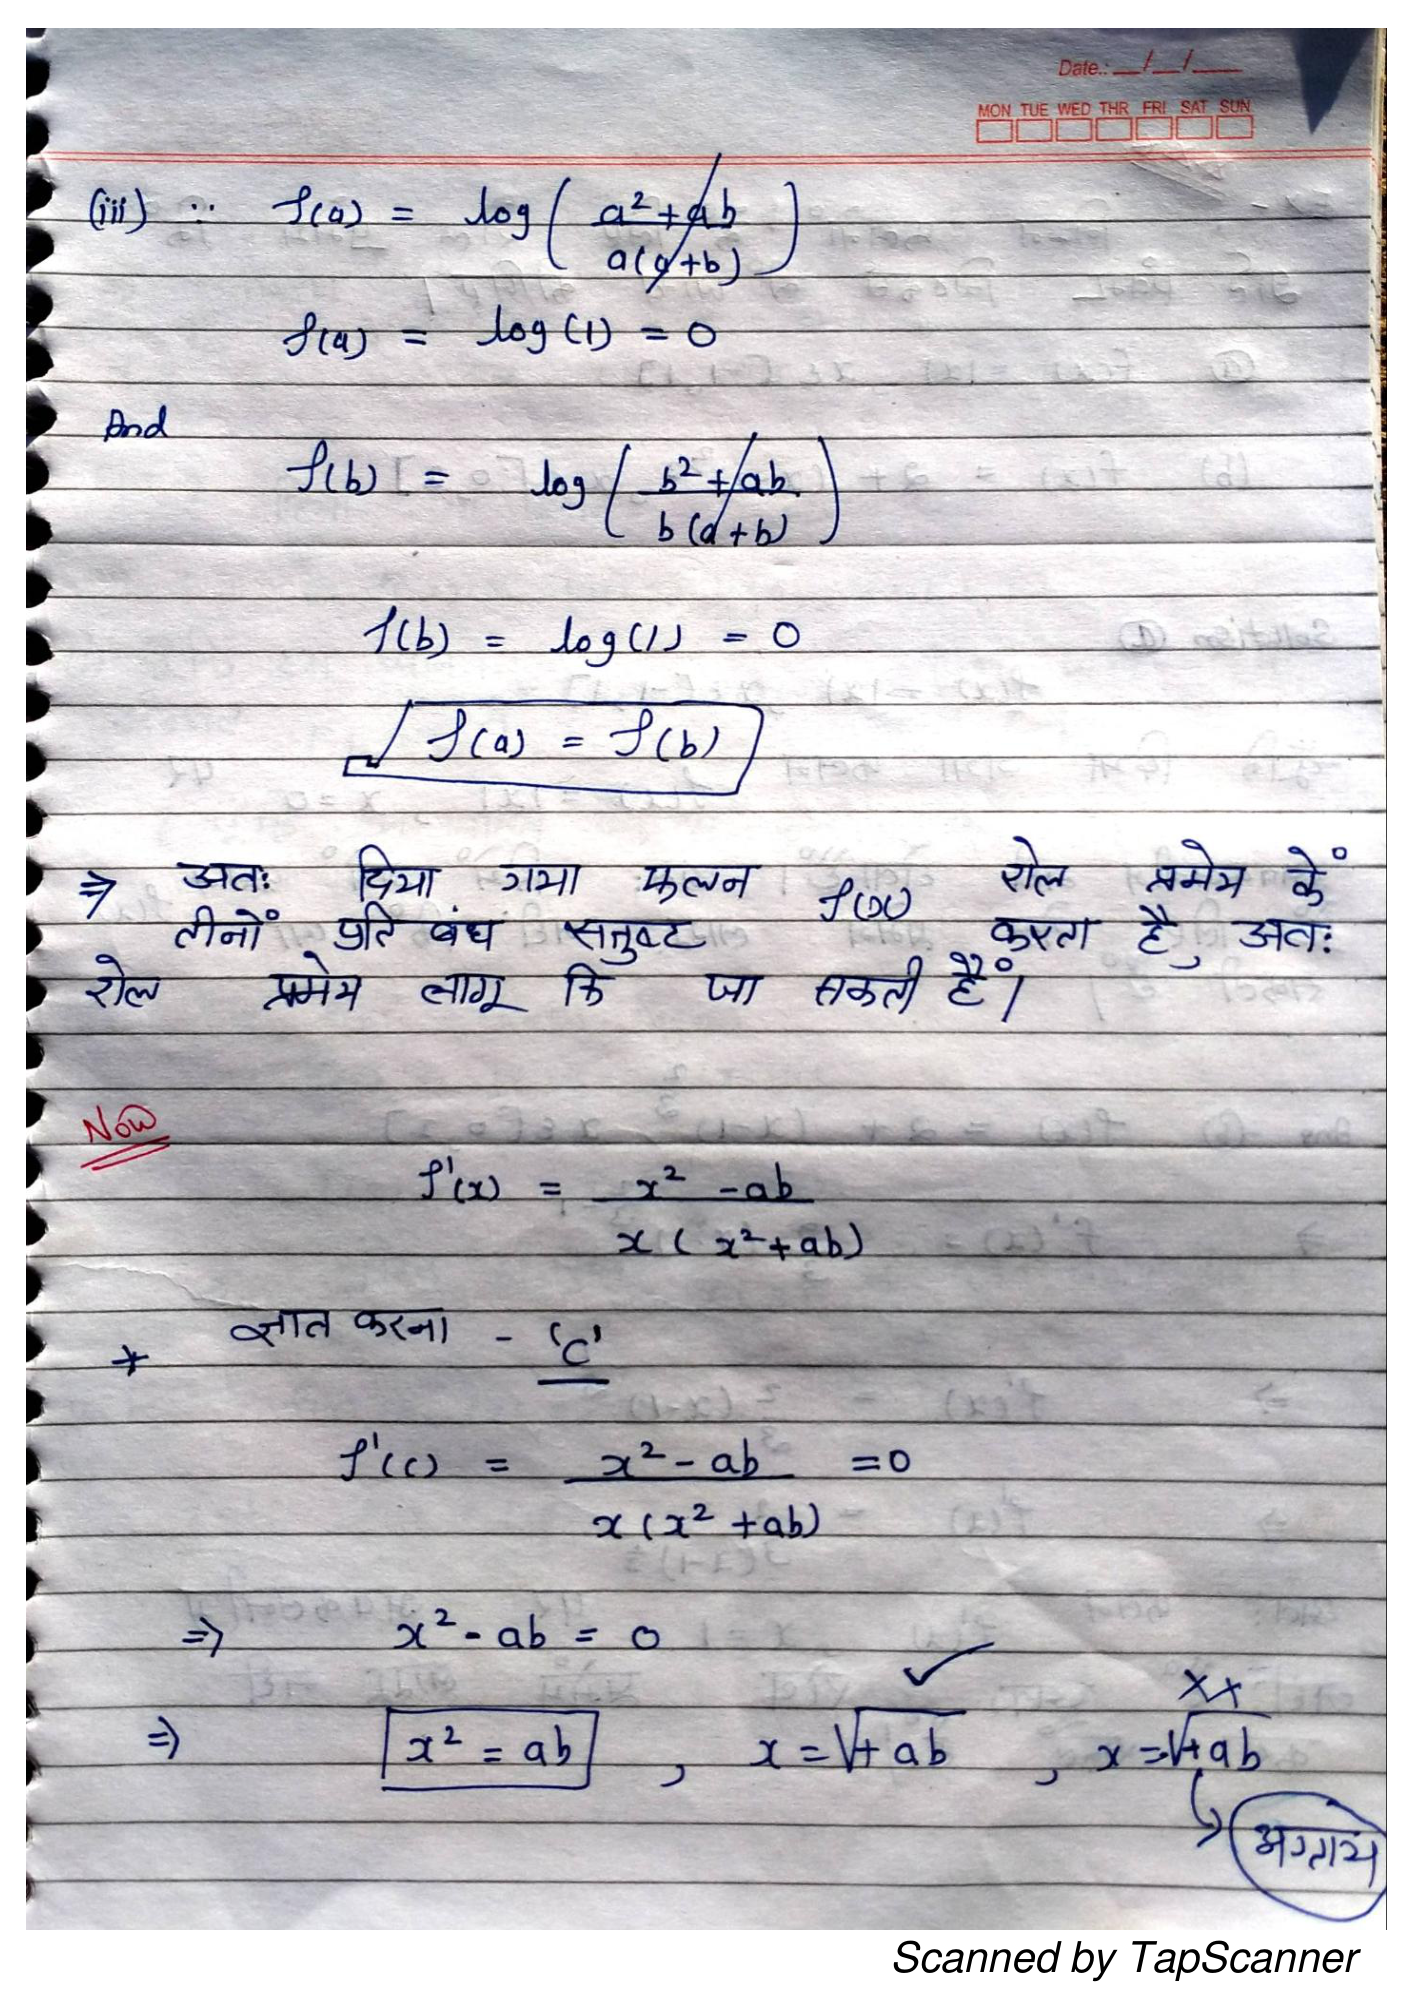 Date.: __/__/___
MON TUE WED THR FRI SAT SUN
(iii) ∵ f(a) = log ( a² + ab / a(a+b) )
f(a) = log(1) = 0
And
f(b) = log ( b² + ab / b(a+b) )
f(b) = log(1) = 0
f(a) = f(b)
⇒ अतः दिया गया फलन f(x) रोल प्रमेय कें
तीनों प्रति बंध सतुष्ट करता है, अतः
रोल प्रमेय लागू कि जा सकती हैं।
Now
f'(x) = x² - ab / x(x² + ab)
* ज्ञात करना - 'c'
f'(c) = x² - ab / x(x² + ab) = 0
⇒ x² - ab = 0
✓ ××
⇒ x² = ab , x = √+ab , x = √+ab
अग्राय
Scanned by TapScanner